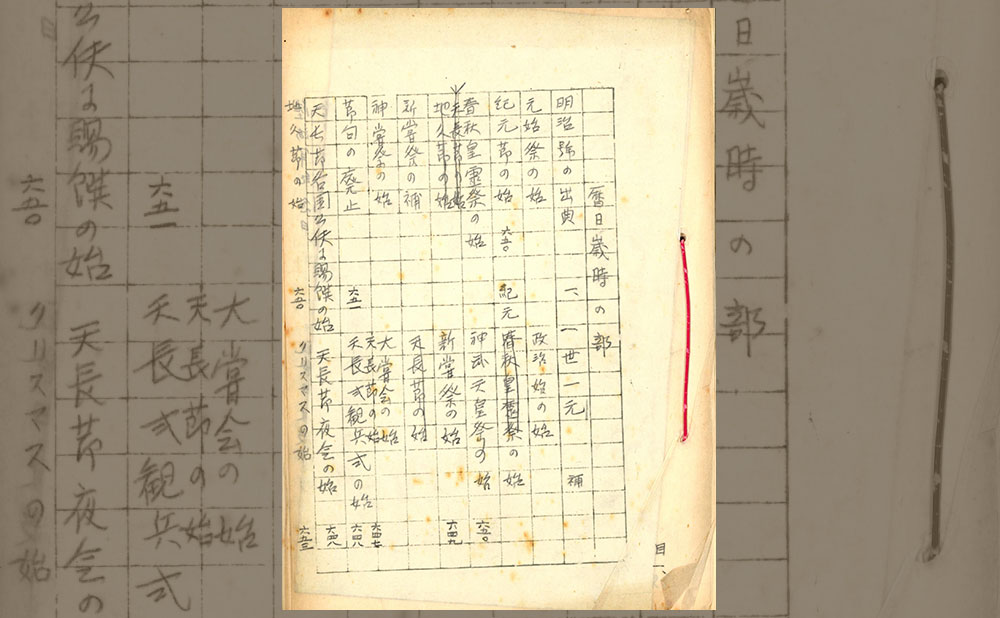 暦日歳時の部
明治号の出典 一、
一世一元 補
元始祭の始
政治始の始
紀元節の始 六五〇 紀元
春秋皇霊祭の始
春秋皇霊祭の始
神武天皇祭の始 六五〇
天長節の始
地久節の始
新嘗祭の始 六四九
新嘗祭の補
天長節の始
神嘗祭の始
大嘗会の始
天長節の始 六四七
節句の廃止 六五一
天長式観兵式の始 六四八
天長節各国公使に賜饌の始
天長節夜会の始 六四八
地久節の始 六五〇
クリスマスの始 六五三
目一、
日歳時の部
大嘗会の始
天長節の始
天長式観兵式
六五一
公使に賜饌の始
天長節夜会の
六五〇
クリスマスの始